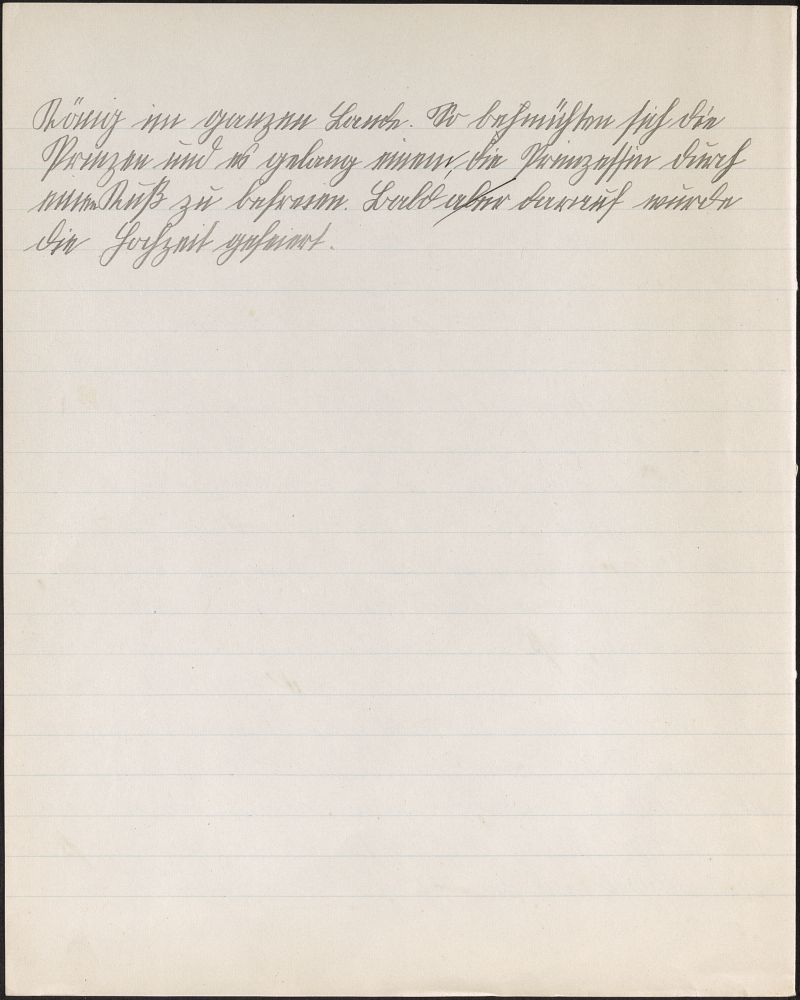 König im ganzen Lande. So behmühten sich die
Prinzen und es gelang einem, die Prinzessin durch
einen Kuß zu befreien. Bald aber darauf wurde
die Hochzeit gefeiert.